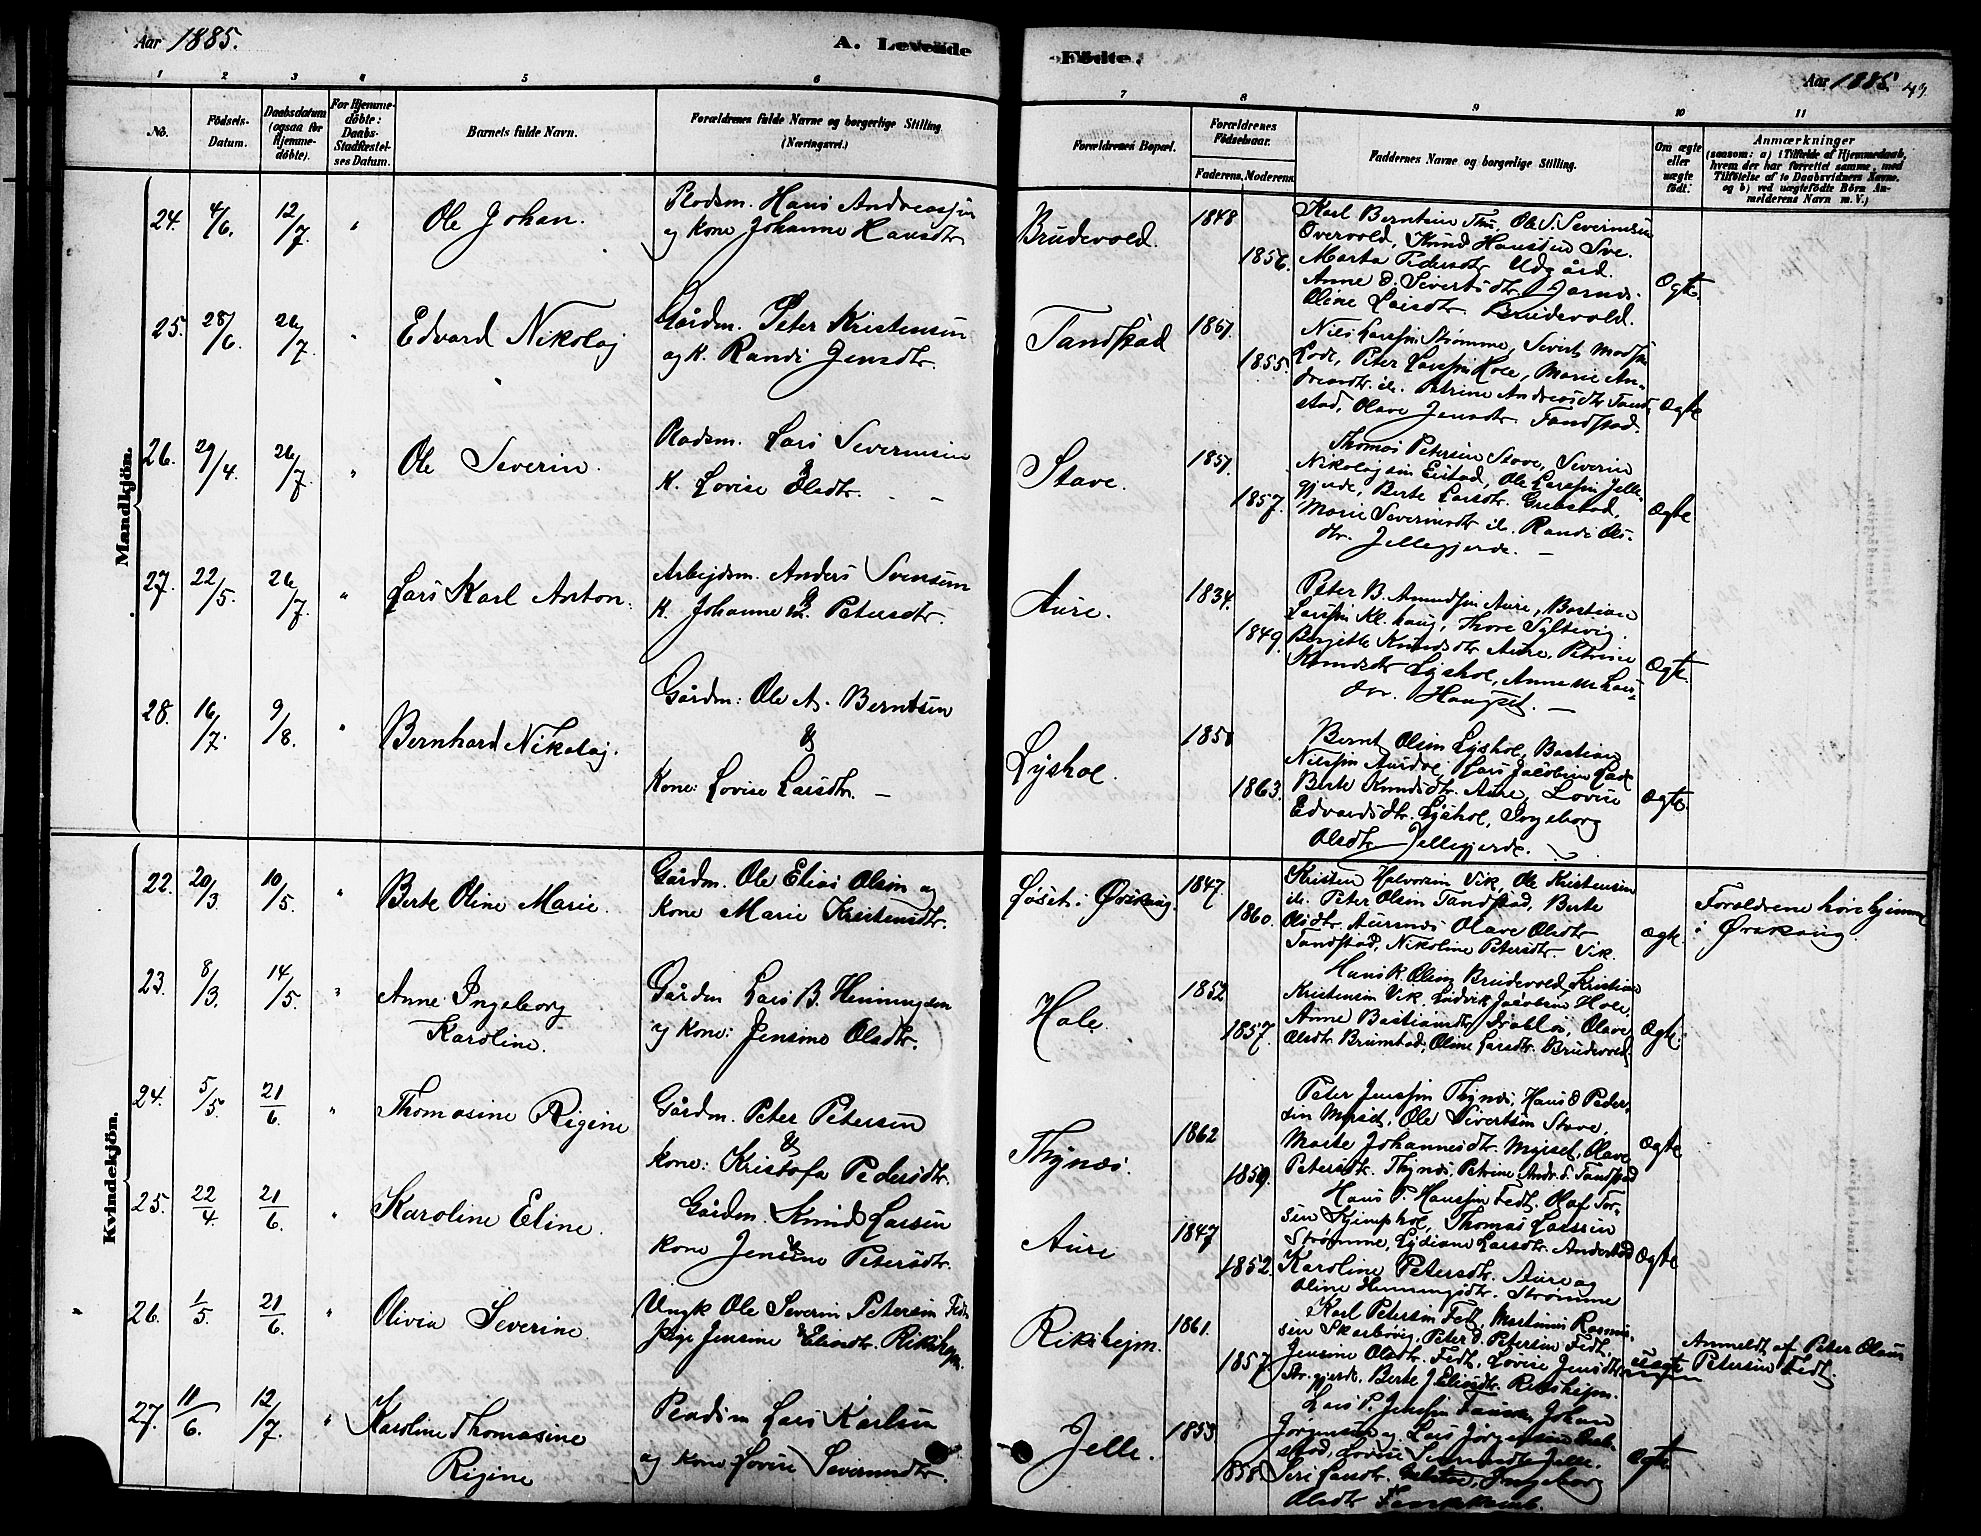 Aar 1885.
A. Levende
Fødte.
Aar 1885.
1
2
3
4
5
6
7
8
9
10
11
No.
Fødsels-
Datum.
Daabsdatum
(ogsaa for
Hjemme-
døbte).
For Hjemme-
døbte:
Daabs-
Stadfæstel-
ses Datum.
Barnets fulde Navn.
Forældrenes fulde Navne og borgerlige Stilling.
(Næringsvei.)
Forældrenes Bopæl.
Forældrenes
Fødselsaar.
Faderens.
Moderens.
Faddernes Navne og borgerlige Stilling.
Om ægte
eller
uægte
født.
Anmærkninger
(saasom: a) i Tilfælde af Hjemmedaab,
hvem der har forrettet samme, med
Tilføielse af to Daabsvidners Navne,
og b) ved uægtefødte Børn An-
melderens Navn m. V.)
Mandkjön.
24. 4/6. 12/7. "
Ole Johan.
Pladsm. Hans Andreassen
og Kone Johanne Hansdtr
Brudevold.
1848
1856.
Karl Berntsen Thu, Ole S. Severinsen
Overvold, Knud Hanssen Sve.
Marta Pedersdtr Udgård.
Anne O. Sivertsdtr
Oline Larsdtr. Brudevold.
Ægte.
25. 28/6 26/7. "
Edvard Nikolaj
Gårdm. Peter Kristensen
og K. Randi Jensdtr.
Tandstad
1851.
1855.
Nils Larssen Strømme, Sivert Madssen
Lode, Peter Larssen Hole, Marie An-
dreasdtr. ib. Petrine Andreasdtr Tand-
stad, Olave Jensdtr Tandstad.
Ægte
26. 29/4. 26/7 "
Ole Severin.
Pladsm. Lars Severinsen
K. Lovise Olsdtr. - -
Stave.
1857.
1857.
Thomas Petersen Stave, Severin
Nikolajsen Eistad, Ole Larssen Jelle-
gjerde, Berte Larsdtr. Grebstad,
Marie Severinsdtr ib. Randi Ols-
dtr. Jellegjerde. -
Ægte
27. 22/5. 26/7. "
Lars Karl Anton.
Arbejdsm. Anders Svensen
K. Johanne M. Petersdtr.
Aure.
1834.
1849.
Peter B. Amundsen Aure, Bastian
Larssen Kl. haug, Thore Sylteviq.
Bergitte Knudsdtr Aure, Petrine
Knudsdtr Lyshol, Anne M. Lars-
dtr. Haugset. -
Ægte.
28. 16/7. 9/8. "
Bernhard Nikolaj.
Gårdm: Ole A. Berntsen
&
Kone: Lovise Larsdtr. -
Lyshol.
1850
1863.
Bernt Olsen Lyshol, Bastian
Nilssen Aursdal, Lars Jacobsen Lade
Berte Knudsdtr. Aure, Lovise
Edvardsdtr. Lyshol, Ingeborg
Olsdtr Jellegjerde.
Ægte.
Kvindekjön.
22. 20/3 10/5. "
Berte Oline Marie.
Gårdm. Ole Elias Olsen og
Kone Marie Kristensdtr.
Løset i Ørskoug.
1847.
1860.
Kristen Halvorsen Vik, Ole Kristensen
ib. Peter Olsen Tandstad, Berte
Olsdtr. Aursnes Olave Olsdtr
Tandstad, Nikoline Petersdtr. Vik.
Ægte.
Forældrene høre hjemme
i Ørskoug.
23. 8/3. 14/5. "
Anne Ingeborg
Karoline.
Gårdm Lars B. Henningsen
og Kone: Jensine Olsdtr.
Hole.
1852
1857.
Hans K. Olsen Brudevold, Kristian
Kristensen Vik. Ludvik Jacobsen Hole,
Anne Bastiansdtr Drabløs, Olave
Olsdtr Brunstad, Oline Larsdtr. Brudevold.
Ægte.
24. 5/5. 21/6. "
Thomasine Rigine
Gårdm. Peter Petersen
&
Kone: Kristofa Pedersdtr.
Thynæs.
1862
1859.
Peter Jenssen Thynæs, Hans O Peder-
sen Myrset, Ole Sivertsen Stave,
Marte Johannesdtr. Myrset, Olave
Petersdtr. Thynæs, Petrine Andr. d. Tandstad
Ægte
25. 22/4. 21/6. "
Karoline Eline.
Gårdm. Knud Larsen
Kone Jensine Petersdtr.
Aure
1847
1852.
Hans P. Hanssen Fedt. Olaf Tor-
sen Kjemphol, Thomas Larssen
Strømme, Lydiane Larsdtr. Andestad
Karoline Petersdtr. Aure og
Oline Henningsdtr. Strømme
Ægte
26. 1/5. 21/6. "
Olivia Severine.
Ungk Ole Severin Petersen Fedt
Pige Jensine Eliasdtr. Riksheim.
Rikshejm.
1861.
1857.
Karl Petersen Fedt, Martinus Rasmus-
sen Skarbøvig, Peter O. Petersen Fedt,
Jensine Olsdtr. Fedt, Lovise Jensdtr.
Berte J Eliasdtr. Rikshejm.
Uægte
Anmeldt af Peter Olaus
Petersen Fedt.
27. 11/6. 12/7. "
Karoline Thomasine
Rigine
Pladsm Lars Karlsen
og Kone Lovise Severinsdtr.
Jelle.
1853
1858.
Lars P. Jenssen Johan
Jørgensen og Lars Jørgensen
Lovise Severinsdtr Jelle.
Seri Larsdtr. Ingeborg
Olsdtr
Ægte